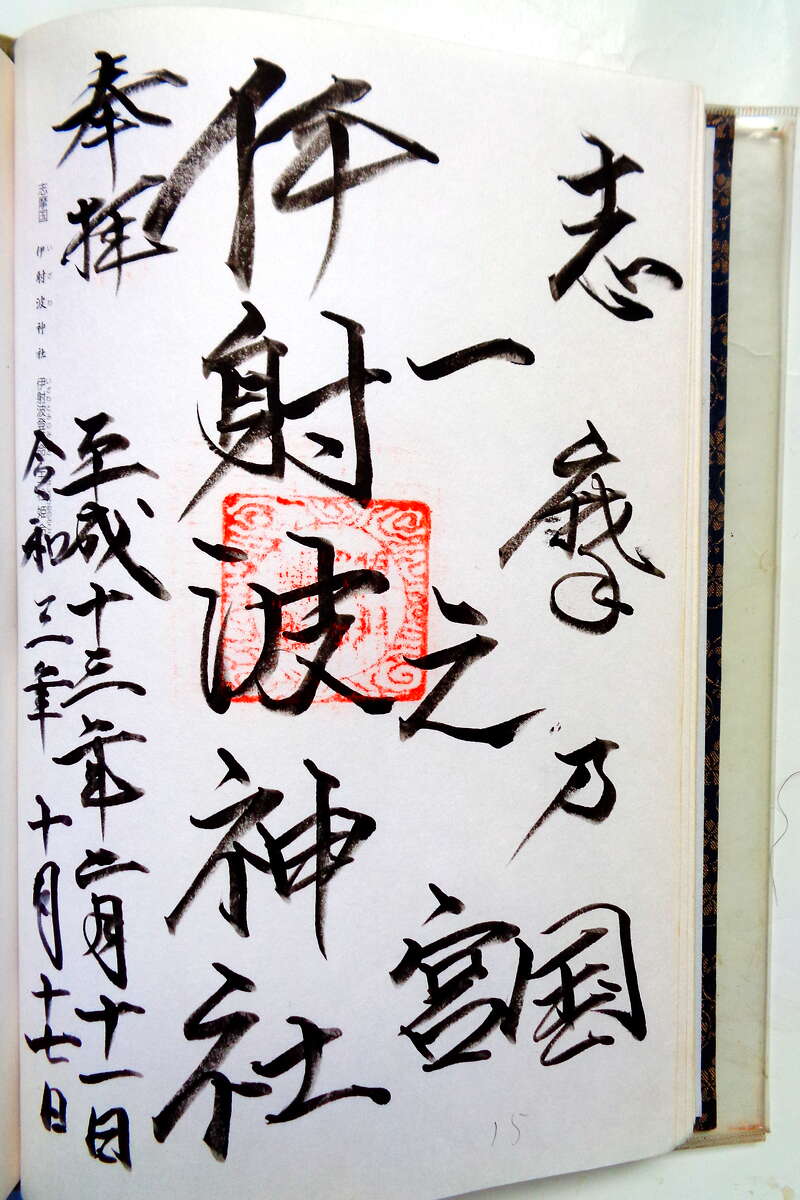 志摩乃国
一之宮
伊射波神社
奉拝
平成十三年二月十一日
令和三年十月十七日
志摩国 伊射波神社
15